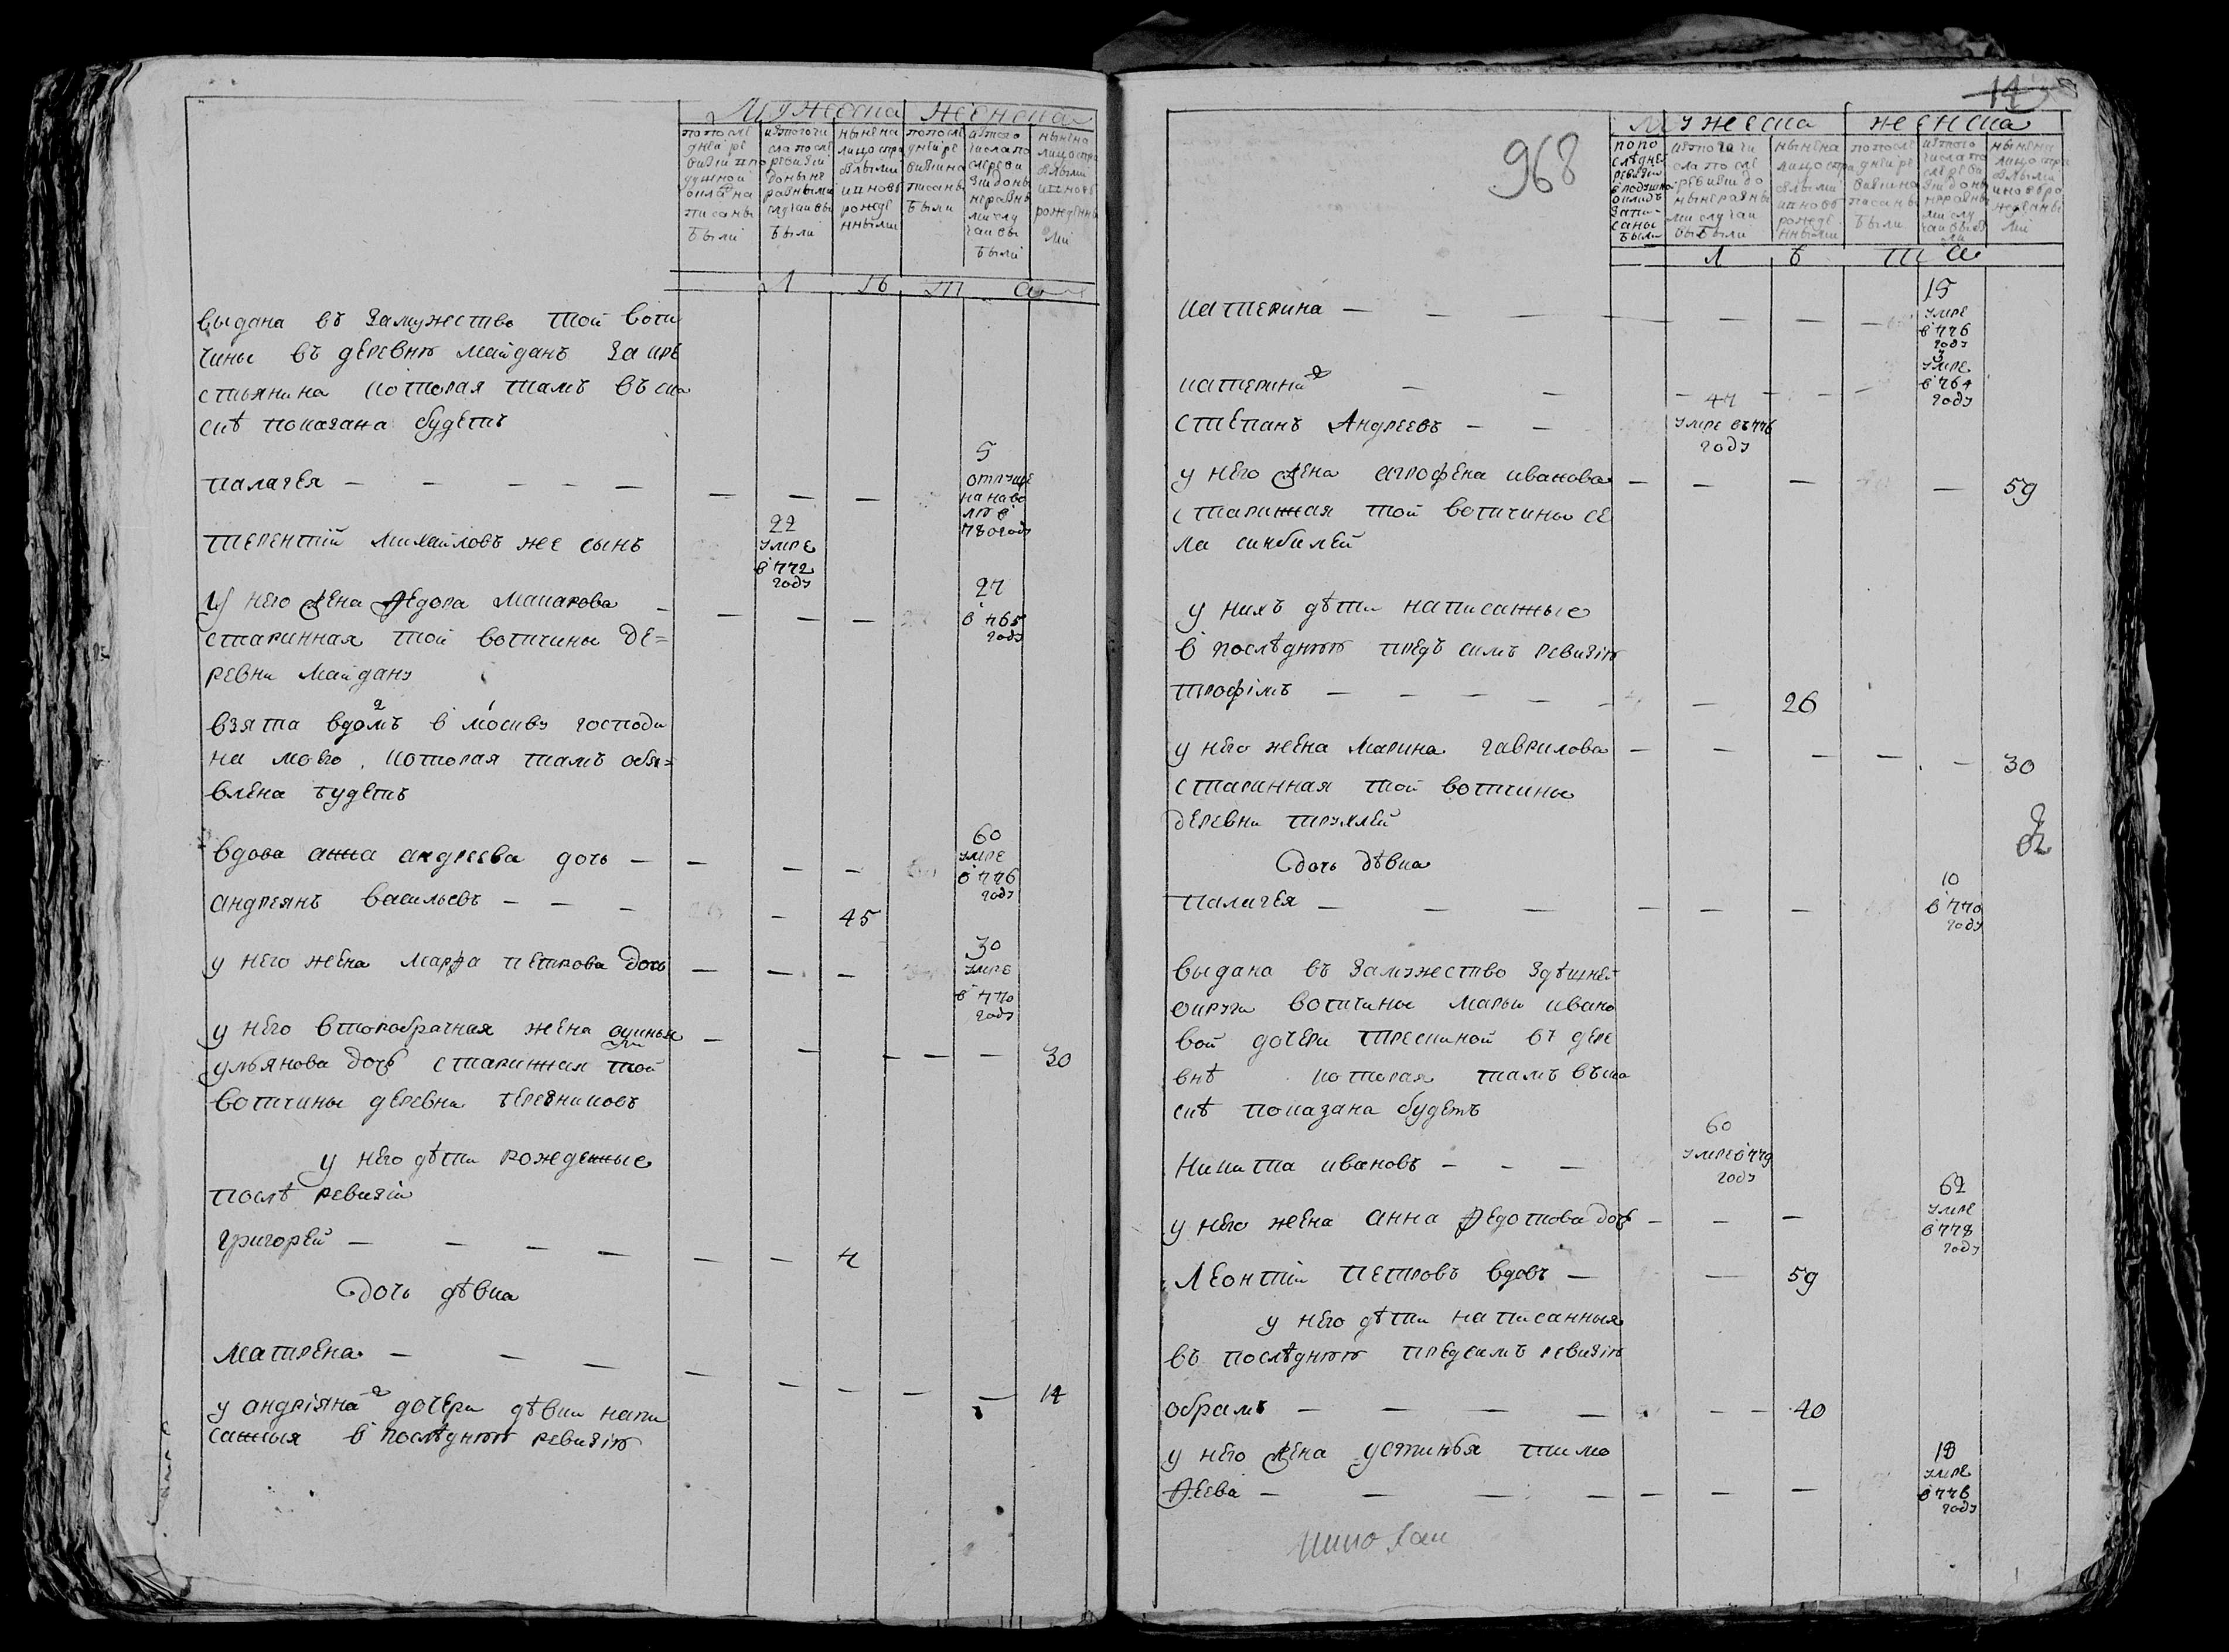 Мужеска женска
попослѣ
дней ре
визіи ппо
душной
окла на
писаны
были
изтого чи
сла послѣ
ревизіи
доныне
разными
случаи вы
были
ныне на
лицо спри
былыми
иновь
рожде
нными
попослѣ
дней ре
визиина
писаны
были
изтого
числа по
сле реви
зии доны
не разны
ми слу
чаи вы
были
ныне на
лицо спри
былыми
иновь
рожденны
ми
л ѣ т а
выдана въ замужество той воти
чины въ деревнѣ майданъ за кре
стьянина которая тамъ въ ска
скѣ показана будетъ
палагея
5
отпуще
на наво
лю в
780 году
терентий михайловъ же сынъ
22
умре
в 772
году
у него жена Ѳедора макарова
27
в 765
году
старинная той вотчины де=
ревни майдану
взята вдомъ в москву господи
на моего, которая тамъ обя=
влена будетъ
вдова анна андреева дочь
60
умре
в 776
году
андреянъ васильевъ
45
у него жена марѳа петрова дочь
30
умре
в 770
году
у него второбрачная жена
ульянова дочь старинная той
30
вотчины деревни березниковъ
у него дѣти рожденные
послѣ ревизіи
григорей
4
дочь дѣвка
матрена
14
у андріяна 2 дочери дѣвки напи
санныя в послѣднюю ревизію
14
968
мужеска женска
попо
слѣдне
ревизии
в подушно
окладъ
запи-
саны
были
изтого чи
сла послѣ
ревизии до
ныне разны
ми случаи
выбыли
ныне на
лицо спри
былыми
иновь
рожде
нными
попослѣ
дней ре
визии на
писаны
были
изтого
числа по
сле реви
зии доны
не разны
ми слу
чаи выбы
ли
ныне на
лицо спри
былыми
иново ро
жденны
ми
л ѣ т а
катерина
15
умре
в 776
году
катерина 2
3
умре
в 764
году
степанъ Андреевъ
47
умре въ 776
году
у него жена аграфена иванова
59
старинная той вотчины се
ла симбилей
у нихъ дѣти написанные
в послѣднюю предъ симъ ревизію
трофімъ
26
у него жена марина гаврилова
30
старинная той вотчины
деревни
дочь дѣвка
палагея
10
в 770
году
выдана въ замужество здѣшней
округи вотчины марьи ивано
вой дочери въ дере
внѣ которая тамъ въ ска
скѣ показана будетъ
Никита ивановъ
60
умре в 779
году
у него жена анна Ѳедотова дочь
62
умре
в 778
году
Леонтіи петровъ вдовъ
59
у него дѣти написанныя
въ послѣднюю предсимъ ревизію
обрамъ
40
у него жена устинья тимо
Ѳеева
18
умре
в 776
году